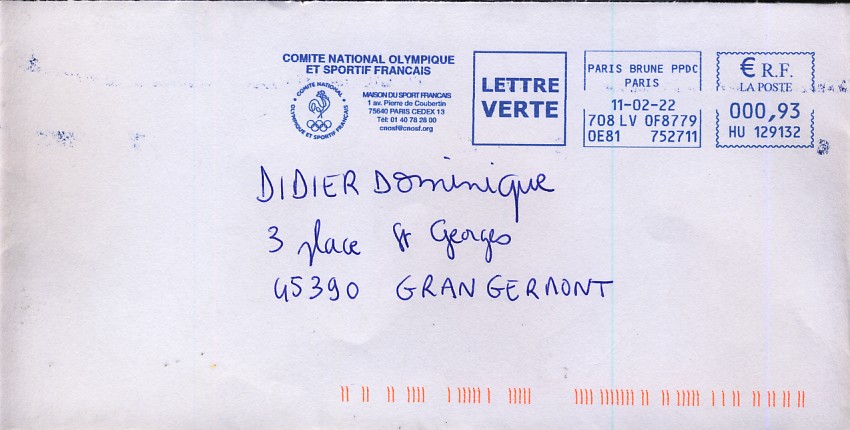 COMITE NATIONAL OLYMPIQUE
ET SPORTIF FRANCAIS
COMITE NATIONAL
OLYMPIQUE ET SPORTIF FRANÇAIS
MAISON DU SPORT FRANCAIS
1 av. Pierre de Coubertin
75640 PARIS CEDEX 13
Tél: 01 40 78 28 00
cnosf@cnosf.org
LETTRE
VERTE
PARIS BRUNE PPDC
PARIS
11-02-22
708 LV 0F8779
0E81 752711
€ R.F.
LA POSTE
000,93
HU 129132
DIDIER Dominique
3 place St Georges
45390 GRANGERMONT